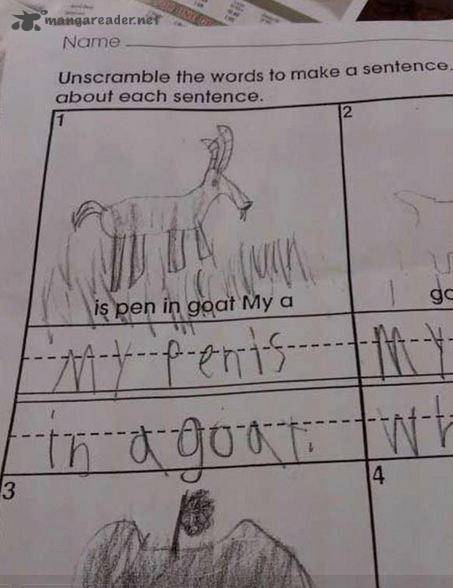 mangareader.net
Name
Unscramble the words to make a sentence.
about each sentence.
1
2
is pen in goat My a
My penis
My
in a goat.
3
4